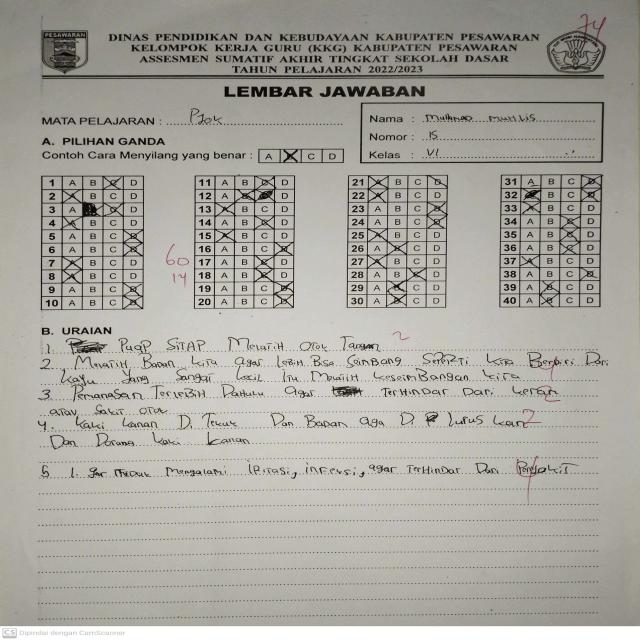 PESAWARAN
DINAS PENDIDIKAN DAN KEBUDAYAAN KABUPATEN PESAWARAN
KELOMPOK KERJA GURU (KKG) KABUPATEN PESAWARAN
ASSESMEN SUMATIF AKHIR TINGKAT SEKOLAH DASAR
TAHUN PELAJARAN 2022/2023
74
LEMBAR JAWABAN
MATA PELAJARAN : PJok
Nama :
Nomor : 15
Kelas : VI
A. PILIHAN GANDA
Contoh Cara Menyilang yang benar : A B C D
1 A B C D 11 A B C D 21 A B C D 31 A B C D
2 A B C D 12 A B C D 22 A B C D 32 A B C D
3 A B C D 13 A B C D 23 A B C D 33 A B C D
4 A B C D 14 A B C D 24 A B C D 34 A B C D
5 A B C D 15 A B C D 25 A B C D 35 A B C D
6 A B C D 16 A B C D 26 A B C D 36 A B C D
7 A B C D 17 A B C D 27 A B C D 37 A B C D
8 A B C D 18 A B C D 28 A B C D 38 A B C D
9 A B C D 19 A B C D 29 A B C D 39 A B C D
10 A B C D 20 A B C D 30 A B C D 40 A B C D
60
14
B. URAIAN
1. SITAP Melatih Otot Tangan 2
2. Melatih Badan kita agar lebih Bisa Seimbang Seperti kita Berdiri Dari
kayu yang Sangat kecil Itu Melatih keseimbangan kita
3 Pemanasan Terlebih Dahulu agar TerHindar Dari keram 2
atau Sakit otot
4. kaki kanan D. Tekuk Dan Badan aga D lurus kan 2
Dan Dorong kaki kanan
5 1. Mengalami Iritasi, infeksi, agar TerHindar Dari Penyakit
CS Dipindai dengan CamScanner